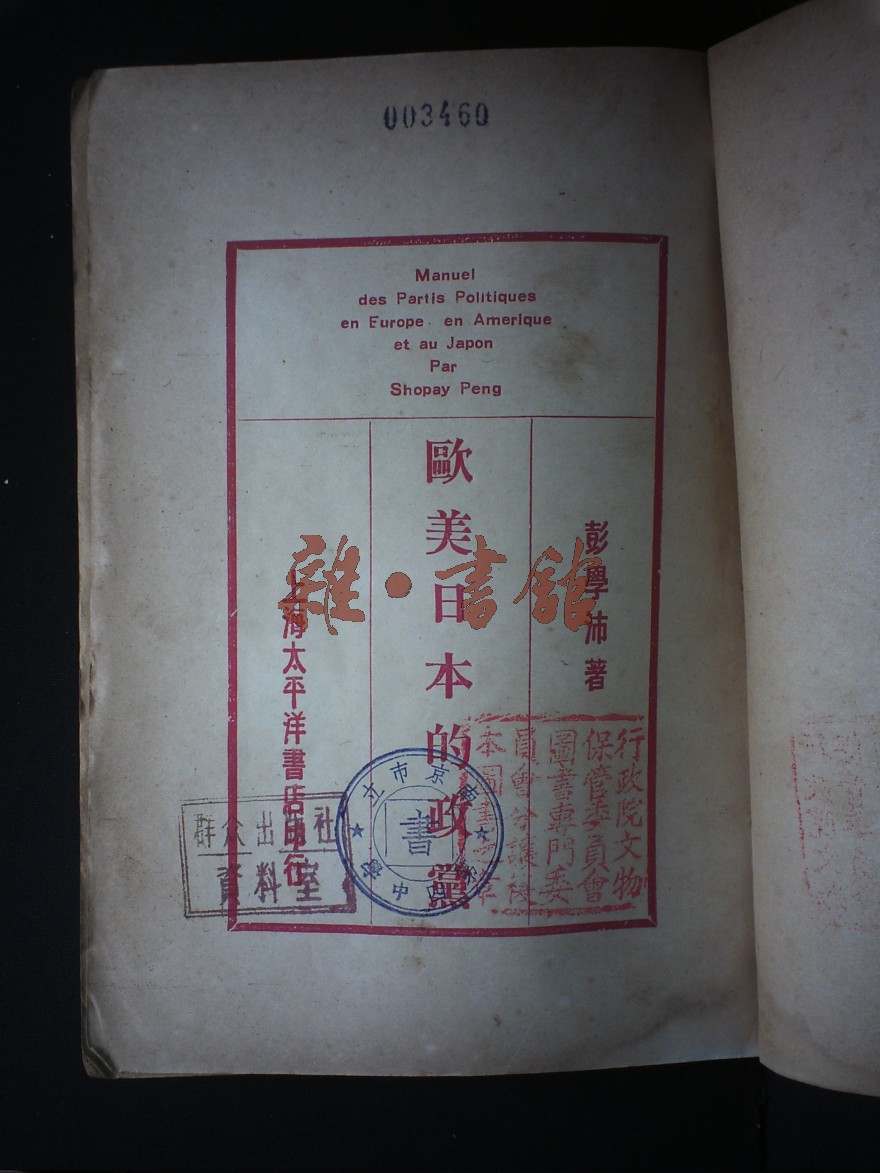 003460
Manuel
des Partis Politiques
en Europe en Amerique
et au Japon
Par
Shopay Peng
彭學沛著
歐美日本的政黨
上海太平洋書店印行
雜·書館
行政院文物
保管委員會
圖書專門委
員會
本圖
市京
中
書
群众出版社
資料室